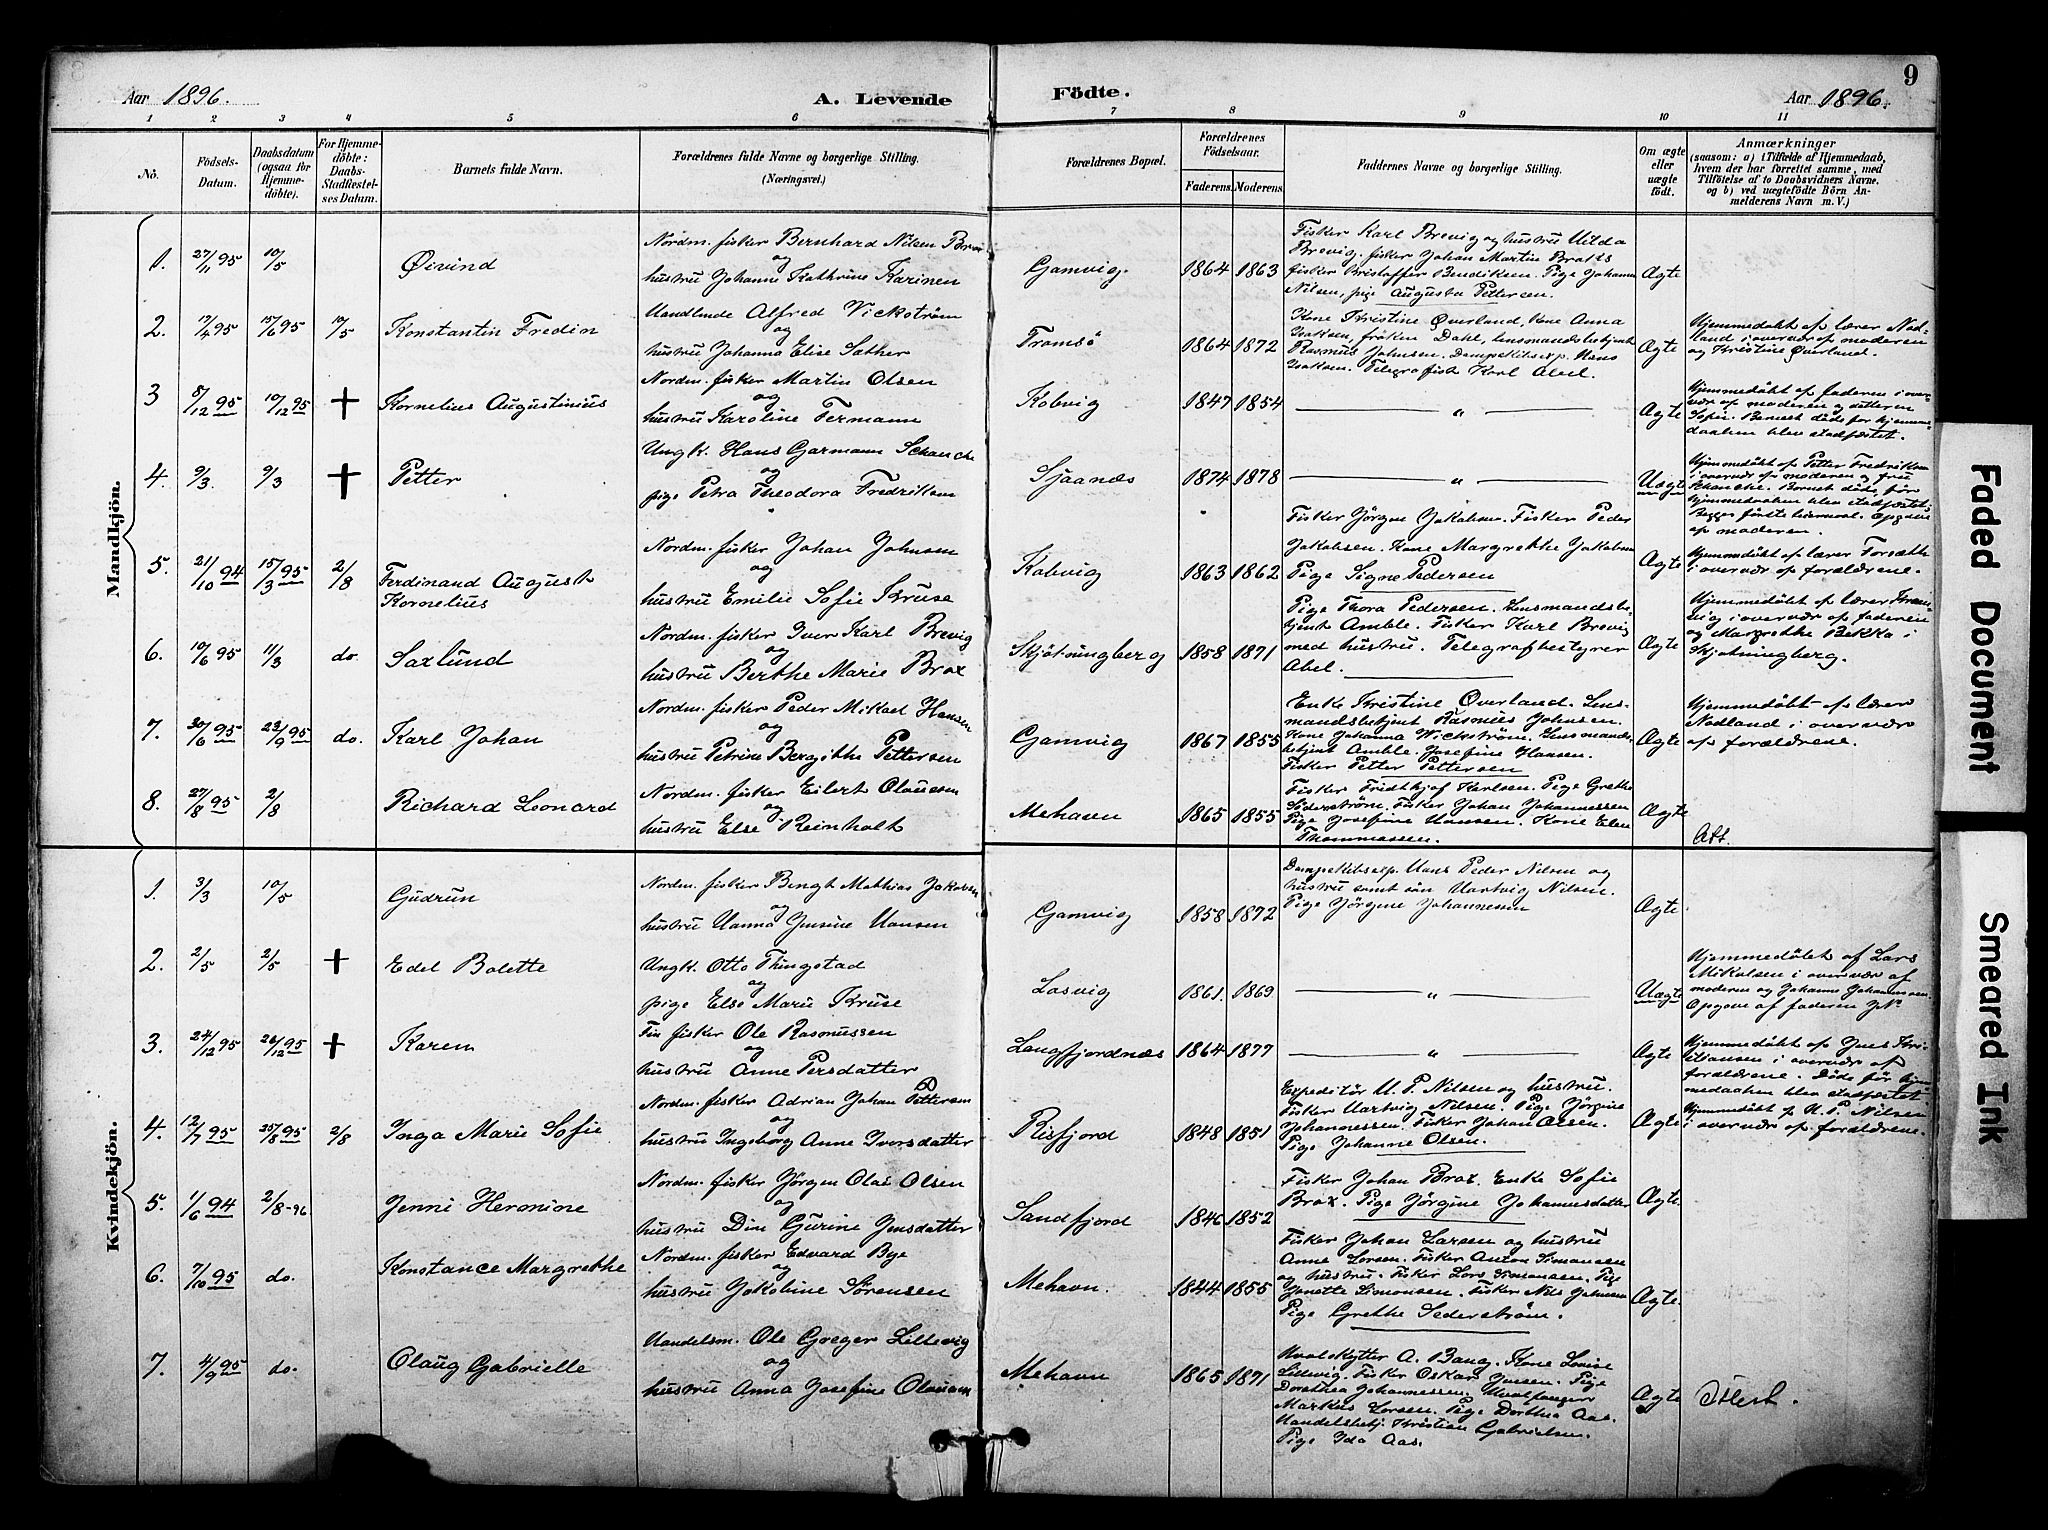 8
9
Aar 1896.
A. Levende
Födte.
Aar 1896.
1 2 3 4 5 6 7 8 9 10 11
No.
Födsels-
Datum.
Daabsdatum
(ogsaa for
Hjemme-
döbte).
For Hjemme-
döbte:
Daabs-
Stadfæstel-
ses Datum.
Barnets fulde Navn.
Forældrenes fulde Navne og borgerlige Stilling.
(Næringsvei.)
Forældrenes Bopæl.
Forældrenes
Födselsaar.
Faderens. Moderens.
Faddernes Navne og borgerlige Stilling.
Om ægte
eller
uægte
födt.
Anmærkninger
(saasom: a) i Tilfælde af Hjemmedaab,
hvem der har forrettet samme, med
Tilföielse af to Daabsvidners Navne,
og b) ved uægtefödte Börn An-
melderens Navn m. V.)
Mandkjön.
1.
27/11 95
10/5
Øivind
Nordm. fisker Bernhard Nilsen Brox
og
hustru Johanne Kathrine Karinen
Gamvig.
1864 1863
Fisker Karl Brevig og hustru Hilda
Brevig, fisker Johan Martin Bratts
fisker Kristoffer Bendiksen. Pige Johanne
Nilsen, pige Augusta Pettersen.
Ægte
2.
15/6 95
10/5
Konstantin Fredin
Handlende Alfred Vickstrøm
og
hustru Johanna Elise Sæther
Tromsø
1864 1872
Kone Kristine Øverland, Kone Anna
Isaksen, frøken Dahl, lensmandsbetjent
Rasmus Johnsen. Dampskibsexp. Hans
Isaksen. Telegrafist Karl Abel.
Ægte
Hjemmedøbt af lærer Nod-
land i overvær af moderen
og Kristine Øverland.
3
8/12 95
10/12 95
+
Kornelius Augustinius
Nordm. fisker Martin Olsen
og
hustru Karoline Fermann
Kobvig
1847 1854
"
Ægte
Hjemmedøbt af faderen i over-
vær af moderen og datteren
Sofie. Barnet døde før hjemme-
daaben blev stadfæstet.
4.
9/3
9/3
+
Petter
Ungk. Hans Garmann Schanche
og
pige Petra Theodora Fredriksen
Sjaanæs
1874 1878
"
Uægte
Hjemmedøbt af Petter Fredriksen
i overvær af moderen og fru
Schanche. Barnet døde før
hjemmedaaben blev stadfæstet.
Begges første leiermaal. Opgave
af moderen.
5.
21/10 94
15/3 95
2/8
Ferdinand August
Kornelius
Nordm. fisker Johan Johnsen
og
hustru Emilie Sofie Kruse
Kobvig
1863 1862
Fisker Jörgen Jakobsen. Fisker Peder
Jakobsen. Kone Margrethe Jakobsen
Pige Signe Pedersen
Ægte
Hjemmedøbt af lærer Forsæth
i overvær af forældrene.
6.
10/6 95
11/3
do.
Saxlund
Nordm. fisker Iver Karl Brevig
og
hustru Berthe Marie Brox
Skjøtningberg
1858 1871
Pige Thora Pedersen. Lensmandsbe-
tjent Amble. Fisker Karl Brevig
med hustru. Telegrafbestyrer
Abel.
Ægte
Hjemmedøbt af lærer
i overvær af faderen
og Margrethe Bekka i
Skjøtningberg.
7.
30/6 95
23/9 95
do.
Karl Johan
Nordm. fisker Peder Mikael Hansen
og
hustru Petrine Bergithe Pettersen
Gamvig
1867 1855
Enke Kristine Øverland. Lens-
mandsbetjent Rasmus Johnsen.
Kone Johanna Wickstrøm. Lensmands-
betjent Amble. Josefine Hansen.
Fisker Petter Pettersen
Ægte
Hjemmedøbt af lærer
Nodland i overvær
af forældrene.
8.
27/8 95
2/8
Richard Leonard
Nordm. fisker Eilert Clausen
og
hustru Else Reinholt
Mehavn
1865 1855
Fisker Fridthjof Karlsen. Pige Grethe
Sederstrøm. Fisker Johan Johannessen
Pige Josefine Hansen. Kone Elen
Thommassen.
Ægte
Att.
Kvindekjön.
1.
3/3
10/5
Gudrun
Nordm. fisker Bengt Mathias Jakobsen
og
hustru Hanna Jensine Hansen
Gamvig
1858 1872
Dampskibsexp. Hans Peder Nilsen og
hustru samt søn Hartvig Nilsen.
Pige Jörgine Johannessen
Ægte
2.
2/5
2/5
+
Edel Bolette
Ungk. Otto Thingstad
og
pige Else Marie Kruse
Losvig
1861. 1869.
"
Uægte
Hjemmedøbt af Lars
Mikalsen i overvær af
moderen og Johanne Johannessen.
Opgave af faderen
3.
24/12 95
26/12 95
+
Karen
Fin fisker Ole Rasmussen
og
hustru Anne Persdatter
Langfjordnæs
1864 1877
"
Ægte
Hjemmedøbt af Jens Kri-
stiansen i overvær af
forældrene. Døde før hjem-
medaaben blev stadfæstet
4.
12/7 95
25/8 95
2/8
Inga Marie Sofie
Nordm. fisker Adrian Johan Pettersen
og
hustru Ingeborg Anne Iversdatter
Risfjord
1848 1851
Expeditör H. P. Nilsen og hustru.
Fisker Hartvig Nilsen. Pige Jörgine
Johannessen. Fisker Johan Olsen.
Pige Johanne Olsen.
Ægte
Hjemmedøbt af H. P. Nilsen
i overvær af forældrene.
5.
1/6 94
2/8-96
Jenni Hermine
Nordm. fisker Jörgen Olai Olsen
og
hustru Din Gurine Jensdatter
Sandfjord
1846 1852
Fisker Johan Brox. Enke Sofie
Brox. Pige Jörgine Johannesdatter
Ægte.
6.
7/10 95
do.
Konstance Margrethe
Nordm. fisker Edvard Bye
og
hustru Jakobine Sörensen
Mehavn.
1844 1855
Fisker Johan Larsen og hustru
Anne Larsen. Fisker Anton Simonsen
og hustru. Fisker Lars Simonsen. Pige
Janette Simonsen. Fisker Nils Johnsen
Pige Grethe Sederstrøm.
Ægte.
7.
4/9 95
do.
Olaug Gabrielle
Handelsm. Ole Greger Lillevig
og
hustru Anna Josefine Clausen
Mehavn
1865 1871
Hvalskytter A. Bang. Kone Lovise
Lillevig. Fisker Oskar Jensen. Pige
Dorothea Johannessen. Hvalfanger
Markus Larsen. Pige Dorthea Aas.
Handelsbetj. Kristian Gabrielsen.
Pige Ida Aas.
Ægte
Faded Document
Smeared Ink